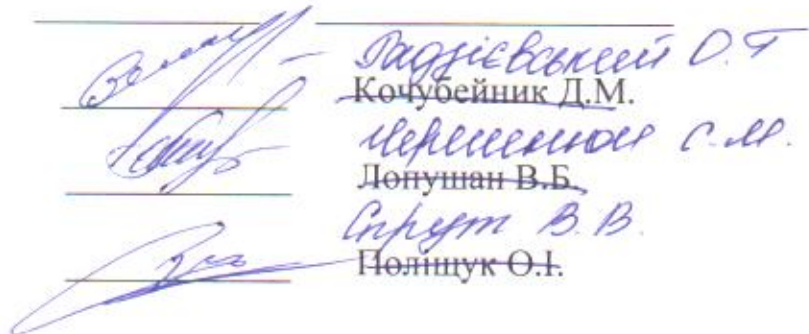 Радзієвський О.Т
Кочубейник Д.М.
С.М.
Лопушан В.Б.
Спрут В.В.
Поліщук О.І.